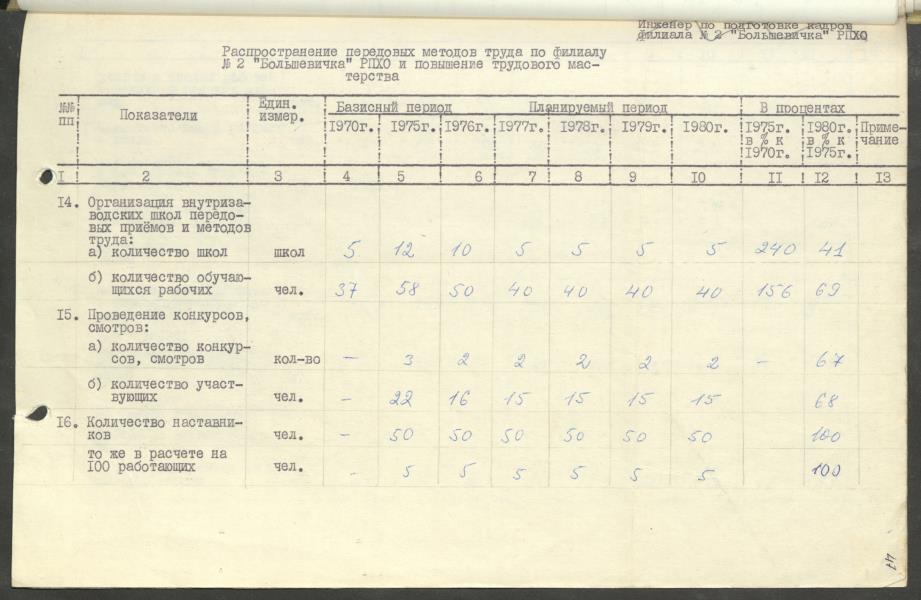 Инженер по подготовке кадров
филиала № 2 "Большевичка" РПХО
Распространение передовых методов труда по филиалу
№ 2 "Большевичка" РПХО и повышение трудового мас-
терства
№№ пп | Показатели | Един. измер. | Базисный период | Планируемый период | В процентах
1970г. | 1975г. | 1976г. | 1977г. | 1978г. | 1979г. | 1980г. | 1975г. в % к 1970г. | 1980г. в % к 1975г. | Приме-чание
I | 2 | 3 | 4 | 5 | 6 | 7 | 8 | 9 | IO | II | I2 | I3
I4. Организация внутриза-
водских школ передо-
вых приёмов и методов
труда:
а) количество школ | школ | 5 | 12 | 10 | 5 | 5 | 5 | 5 | 240 | 41
б) количество обучаю-
щихся рабочих | чел. | 37 | 58 | 50 | 40 | 40 | 40 | 40 | 156 | 69
I5. Проведение конкурсов,
смотров:
а) количество конкур-
сов, смотров | кол-во | – | 3 | 2 | 2 | 2 | 2 | 2 | – | 67
б) количество участ-
вующих | чел. | – | 22 | 16 | 15 | 15 | 15 | 15 | 68
I6. Количество наставни-
ков | чел. | – | 50 | 50 | 50 | 50 | 50 | 50 | 100
то же в расчете на
I00 работающих | чел. | – | 5 | 5 | 5 | 5 | 5 | 5 | 100